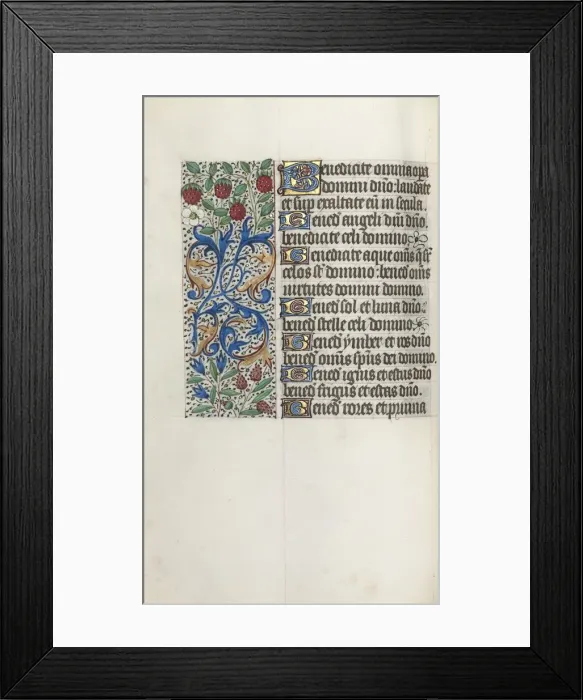 Benedicite omnia opa
domini dño: laudate
et sup exaltate eũ in secula.
Bened angeli dñi dño.
benedicite celi domino
Benedicite aque oms q̃ sr̃
celos st̃ domino: bened oms
uirtutes domini domino.
Bened sol et luna dño:
bened stelle celi domino
Bened ymber et ros dño
bened omnis spũs dei domino.
Bened ignis et estus dño
bened frigus et estas dño.
Bened rores et pruina